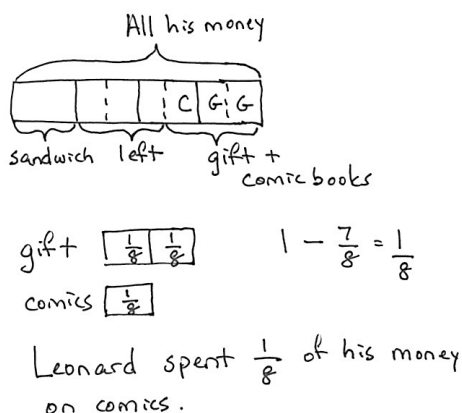 All his money
C G G
sandwich left gift +
comic books
gift 1/8 1/8 1 - 7/8 = 1/8
comics 1/8
Leonard spent 1/8 of his money
on comics.